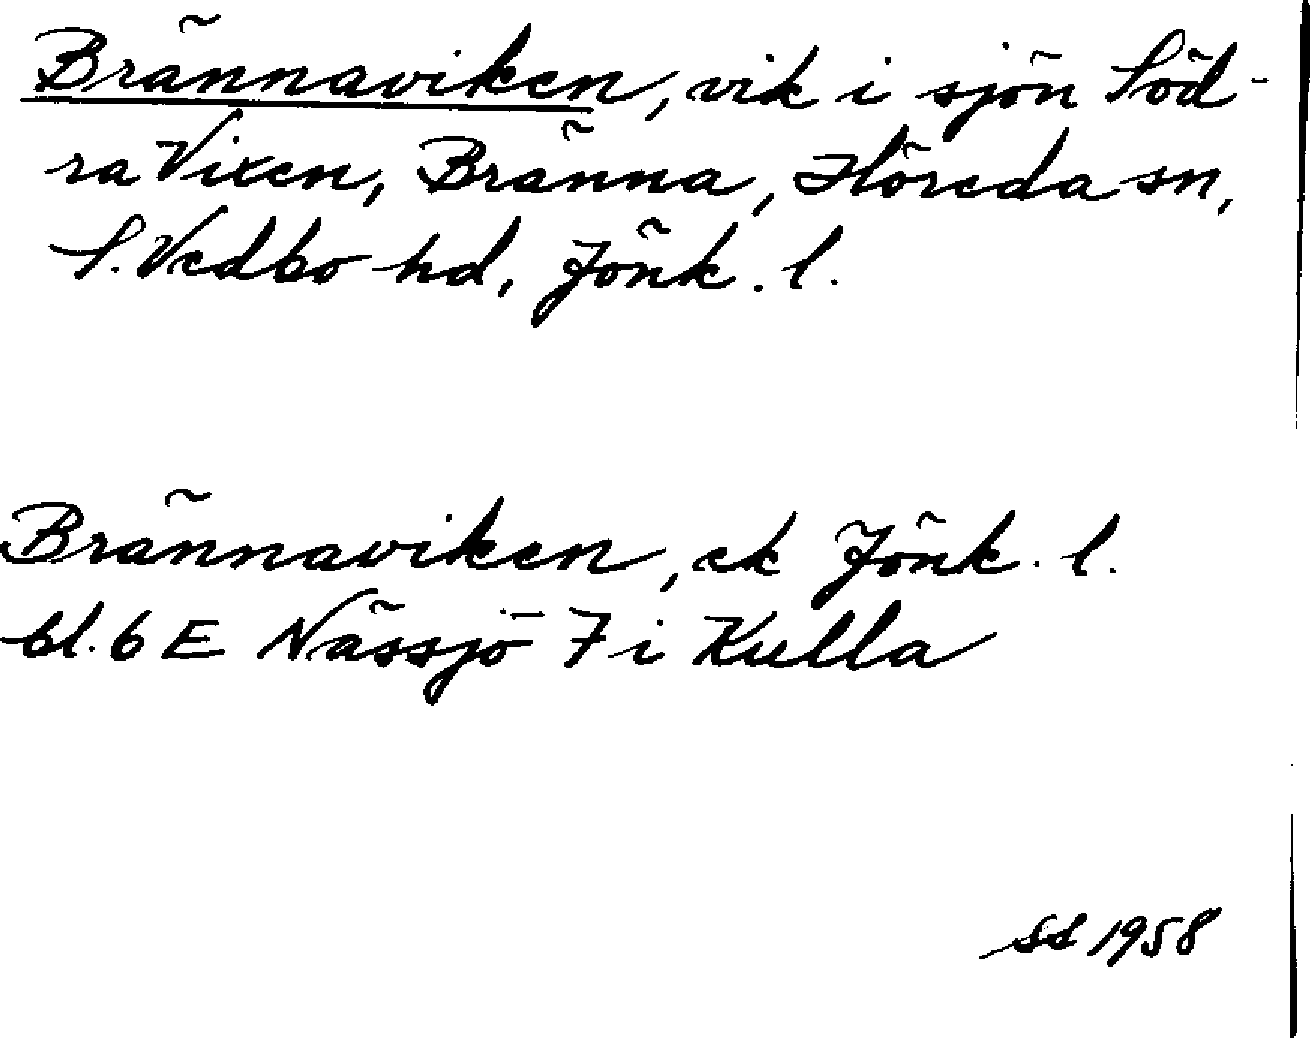 Brännaviken, vik i sjön Söd-
ra Vixen, Bränna, Höreda sn,
S. Vedbo hd, Jönk. l.
Brännaviken, ek Jönk. l.
bl. 6 E Nässjö 7 i Kulla
SS 1958